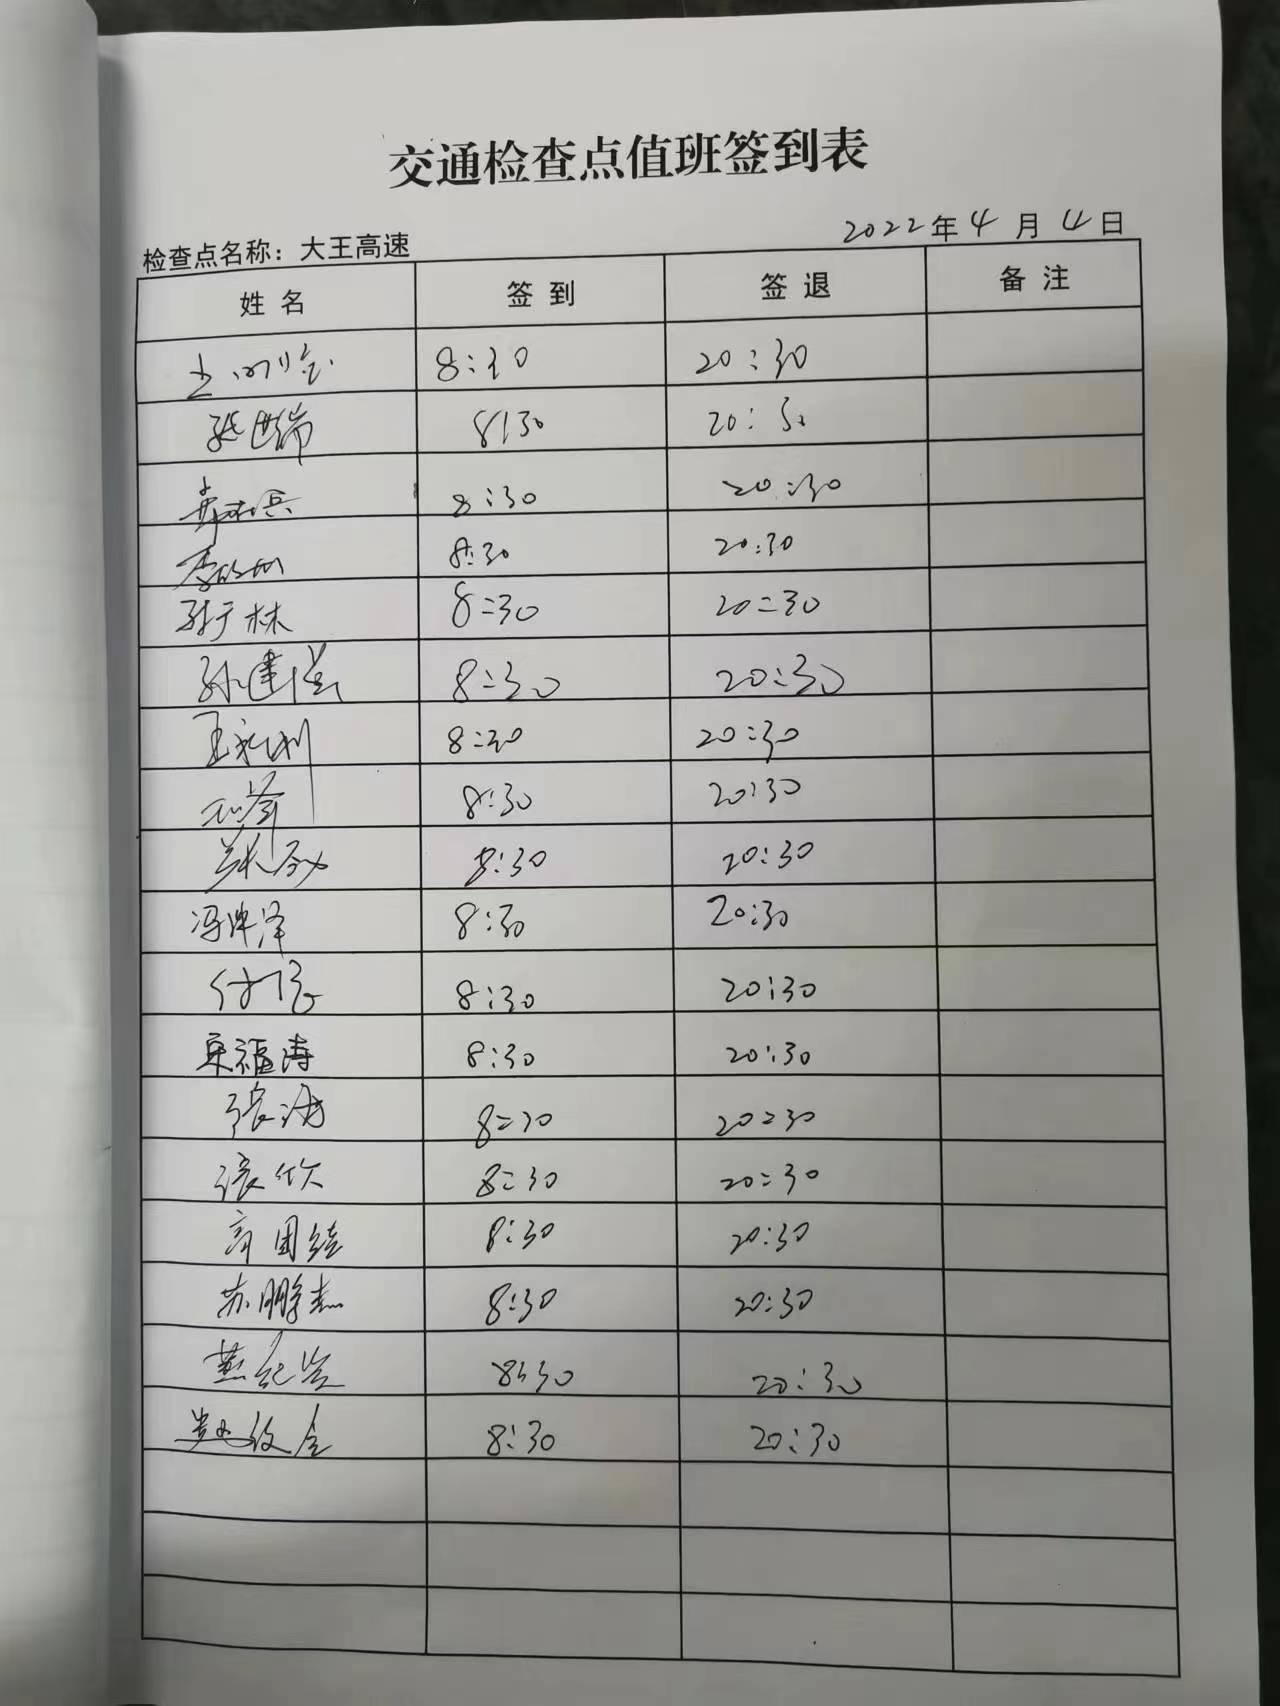 交通检查点值班签到表
检查点名称：大王高速 2022年4月4日
姓名 签到 签退 备注
8:30 20:30
张世瑞 8:30 20:30
8:30 20:30
8:30 20:30
林 8:30 20:30
孙建 8:30 20:30
王永利 8:30 20:30
8:30 20:30
8:30 20:30
冯坤泽 8:30 20:30
付 8:30 20:30
宋福涛 8:30 20:30
张海 8:30 20:30
张欣 8:30 20:30
高团结 8:30 20:30
苏鹏杰 8:30 20:30
燕纪 8:30 20:30
8:30 20:30